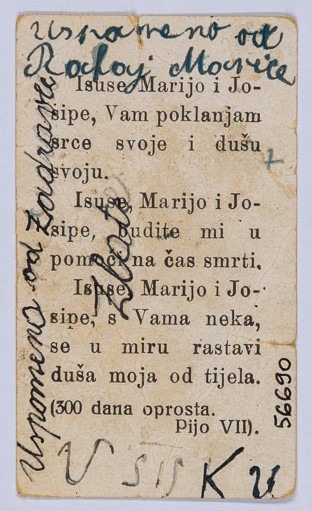 uspomeno od
Radoj Marice
Isuse, Marijo i Jo-
sipe, Vam poklanjam
srce svoje i dušu
svoju.
Isuse, Marijo i Jo-
sipe, budite mi u
pomoći na čas smrti.
Isuse, Marijo i Jo-
sipe, s Vama neka,
se u miru rastavi
duša moja od tijela.
(300 dana oprosta.
Pijo VII).
Uspomena od Zadravec
Zlate
56690
U SIS K U